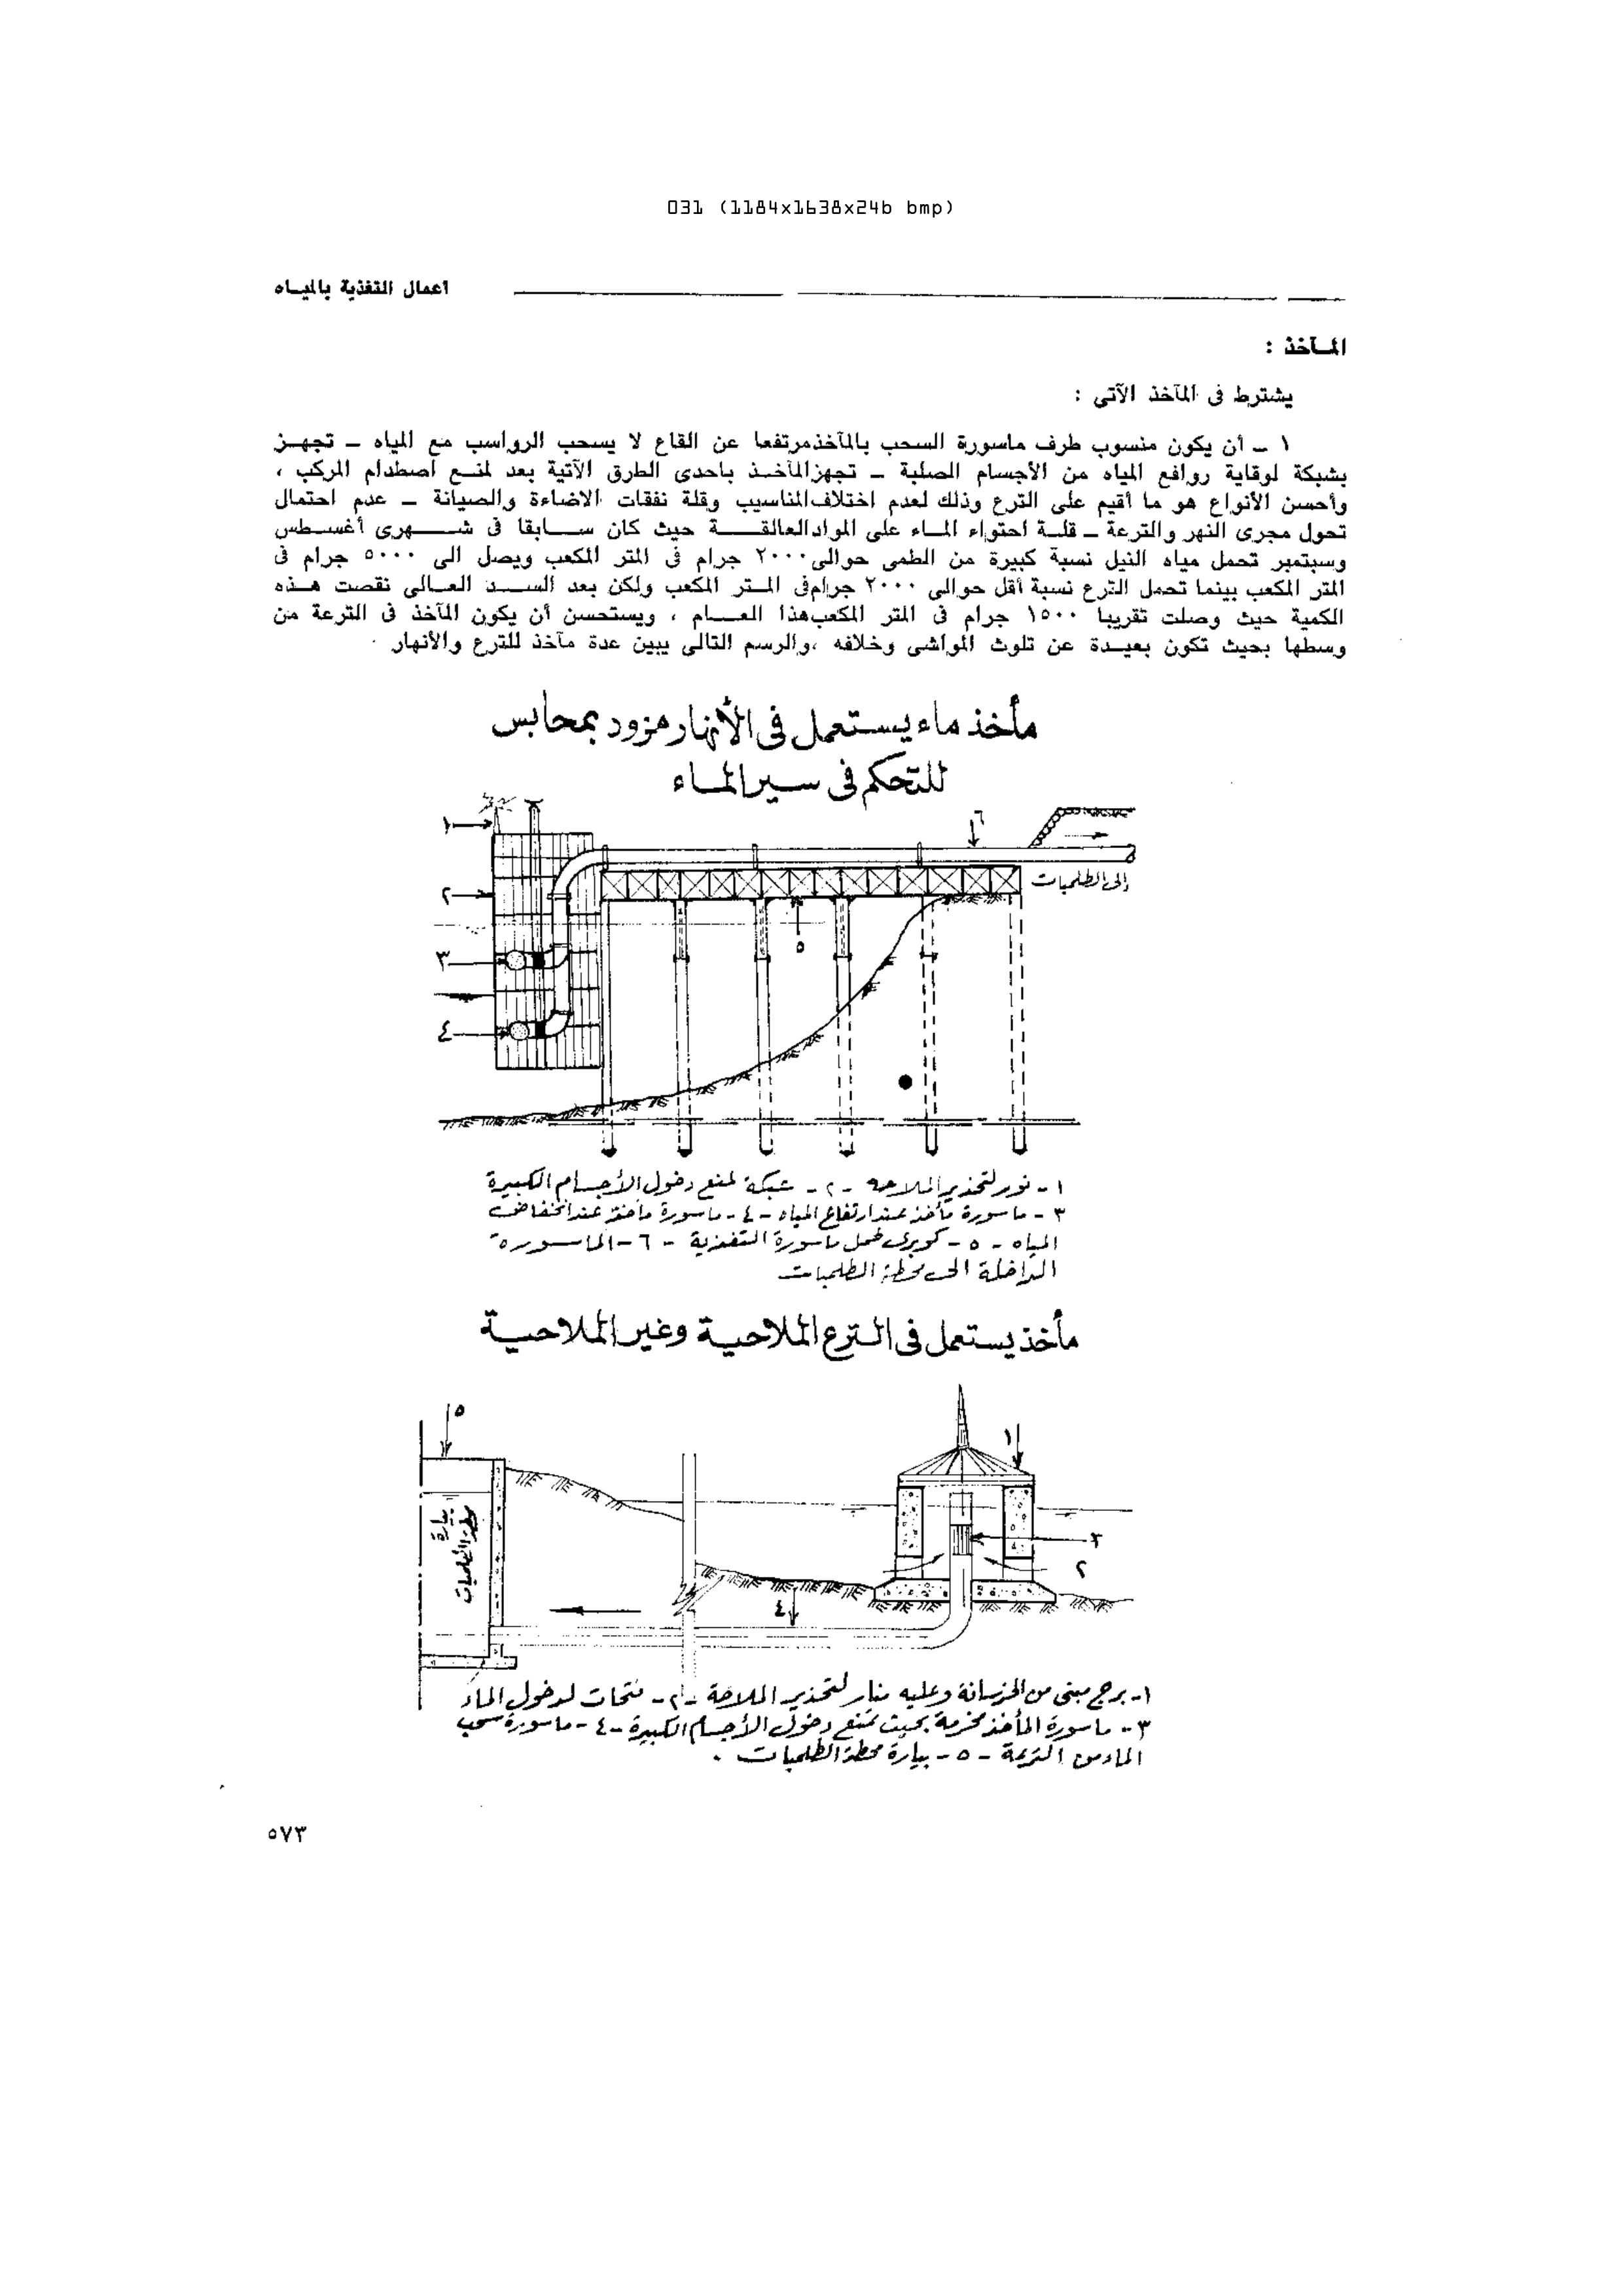 031 (1184x1638x24b bmp)
اعمال التغذية بالميـاه
المـآخذ :
يشترط فى المآخذ الآتى :
١ ـ أن يكون منسوب طرف ماسورة السحب بالمآخذ مرتفعا عن القاع لا يسحب الرواسب مع المياه ـ تجهـز
بشبكة لوقاية روافع المياه من الأجسام الصلبة ـ تجهز المآخـذ باحدى الطرق الآتية بعد لمنـع اصطدام المركب ،
وأحسن الأنواع هو ما أقيم على الترع وذلك لعدم اختلاف المناسيب وقلة نفقات الاضاءة والصيانة ـ عدم احتمال
تحول مجرى النهر والترعة ـ قلـة احتواء المـاء على المواد العالقـــة حيث كان ســابقا فى شـــهرى أغسـطس
وسبتمبر تحمل مياه النيل نسبة كبيرة من الطمى حوالى ٢٠٠٠ جرام فى المتر المكعب ويصل الى ٥٠٠٠ جرام فى
المتر المكعب بينما تحمل الترع نسبة أقل حوالى ٢٠٠٠ جرام فى المـتر المكعب ولكن بعد الســد العـالى نقصت هـذه
الكمية حيث وصلت تقريبا ١٥٠٠ جرام فى المتر المكعب هذا العـــام ، ويستحسن أن يكون المآخذ فى الترعة من
وسطها بحيث تكون بعيـدة عن تلوث المواشى وخلافه ، والرسم التالى يبين عدة مآخذ للترع والأنهار
مأخذ ماء يستعمل فى الأنهار مزود بمحابس
للتحكم فى سير المـاء
١
٦
إلى الطلمبات
٢
٥
٣
٤
١ - نور لتحذير الملاحه - ٢ - شبكة لمنع دخول الأجسام الكبيرة
٣ - ماسورة مأخذ عند ارتفاع المياه - ٤ - ماسورة مأخذ عند انخفاض
المياه - ٥ - كوبرى لحمل ماسورة التغذية - ٦ - الماسوره
الداخلة الى محطة الطلمبات
مأخذ يستعمل فى الترع الملاحية وغير الملاحية
٥
١
بيارة
محطة الطلمبات
٣
٢
٤
١- برج مبنى من الخرسانة وعليه منار لتحذير الملاحة - ٢ - فتحات لدخول الماء
٣ - ماسورة المأخذ مخرمة بحيث تمنع دخول الأجسام الكبيرة - ٤ - ماسورة سحب
الماء من الترعة - ٥ - بيارة محطة الطلمبات .
٥٧٣